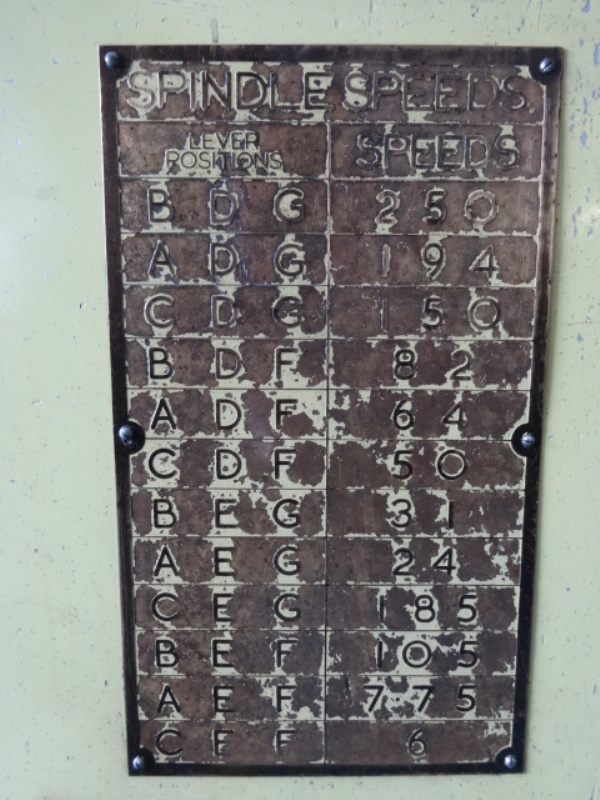 SPINDLE SPEEDS.
LEVER POSITIONS SPEEDS
B D G 250
A D G 194
C D G 150
B D F 82
A D F 64
C D F 50
B E G 31
A E G 24
C E G 185
B E F 105
A E F 775
C E F 6